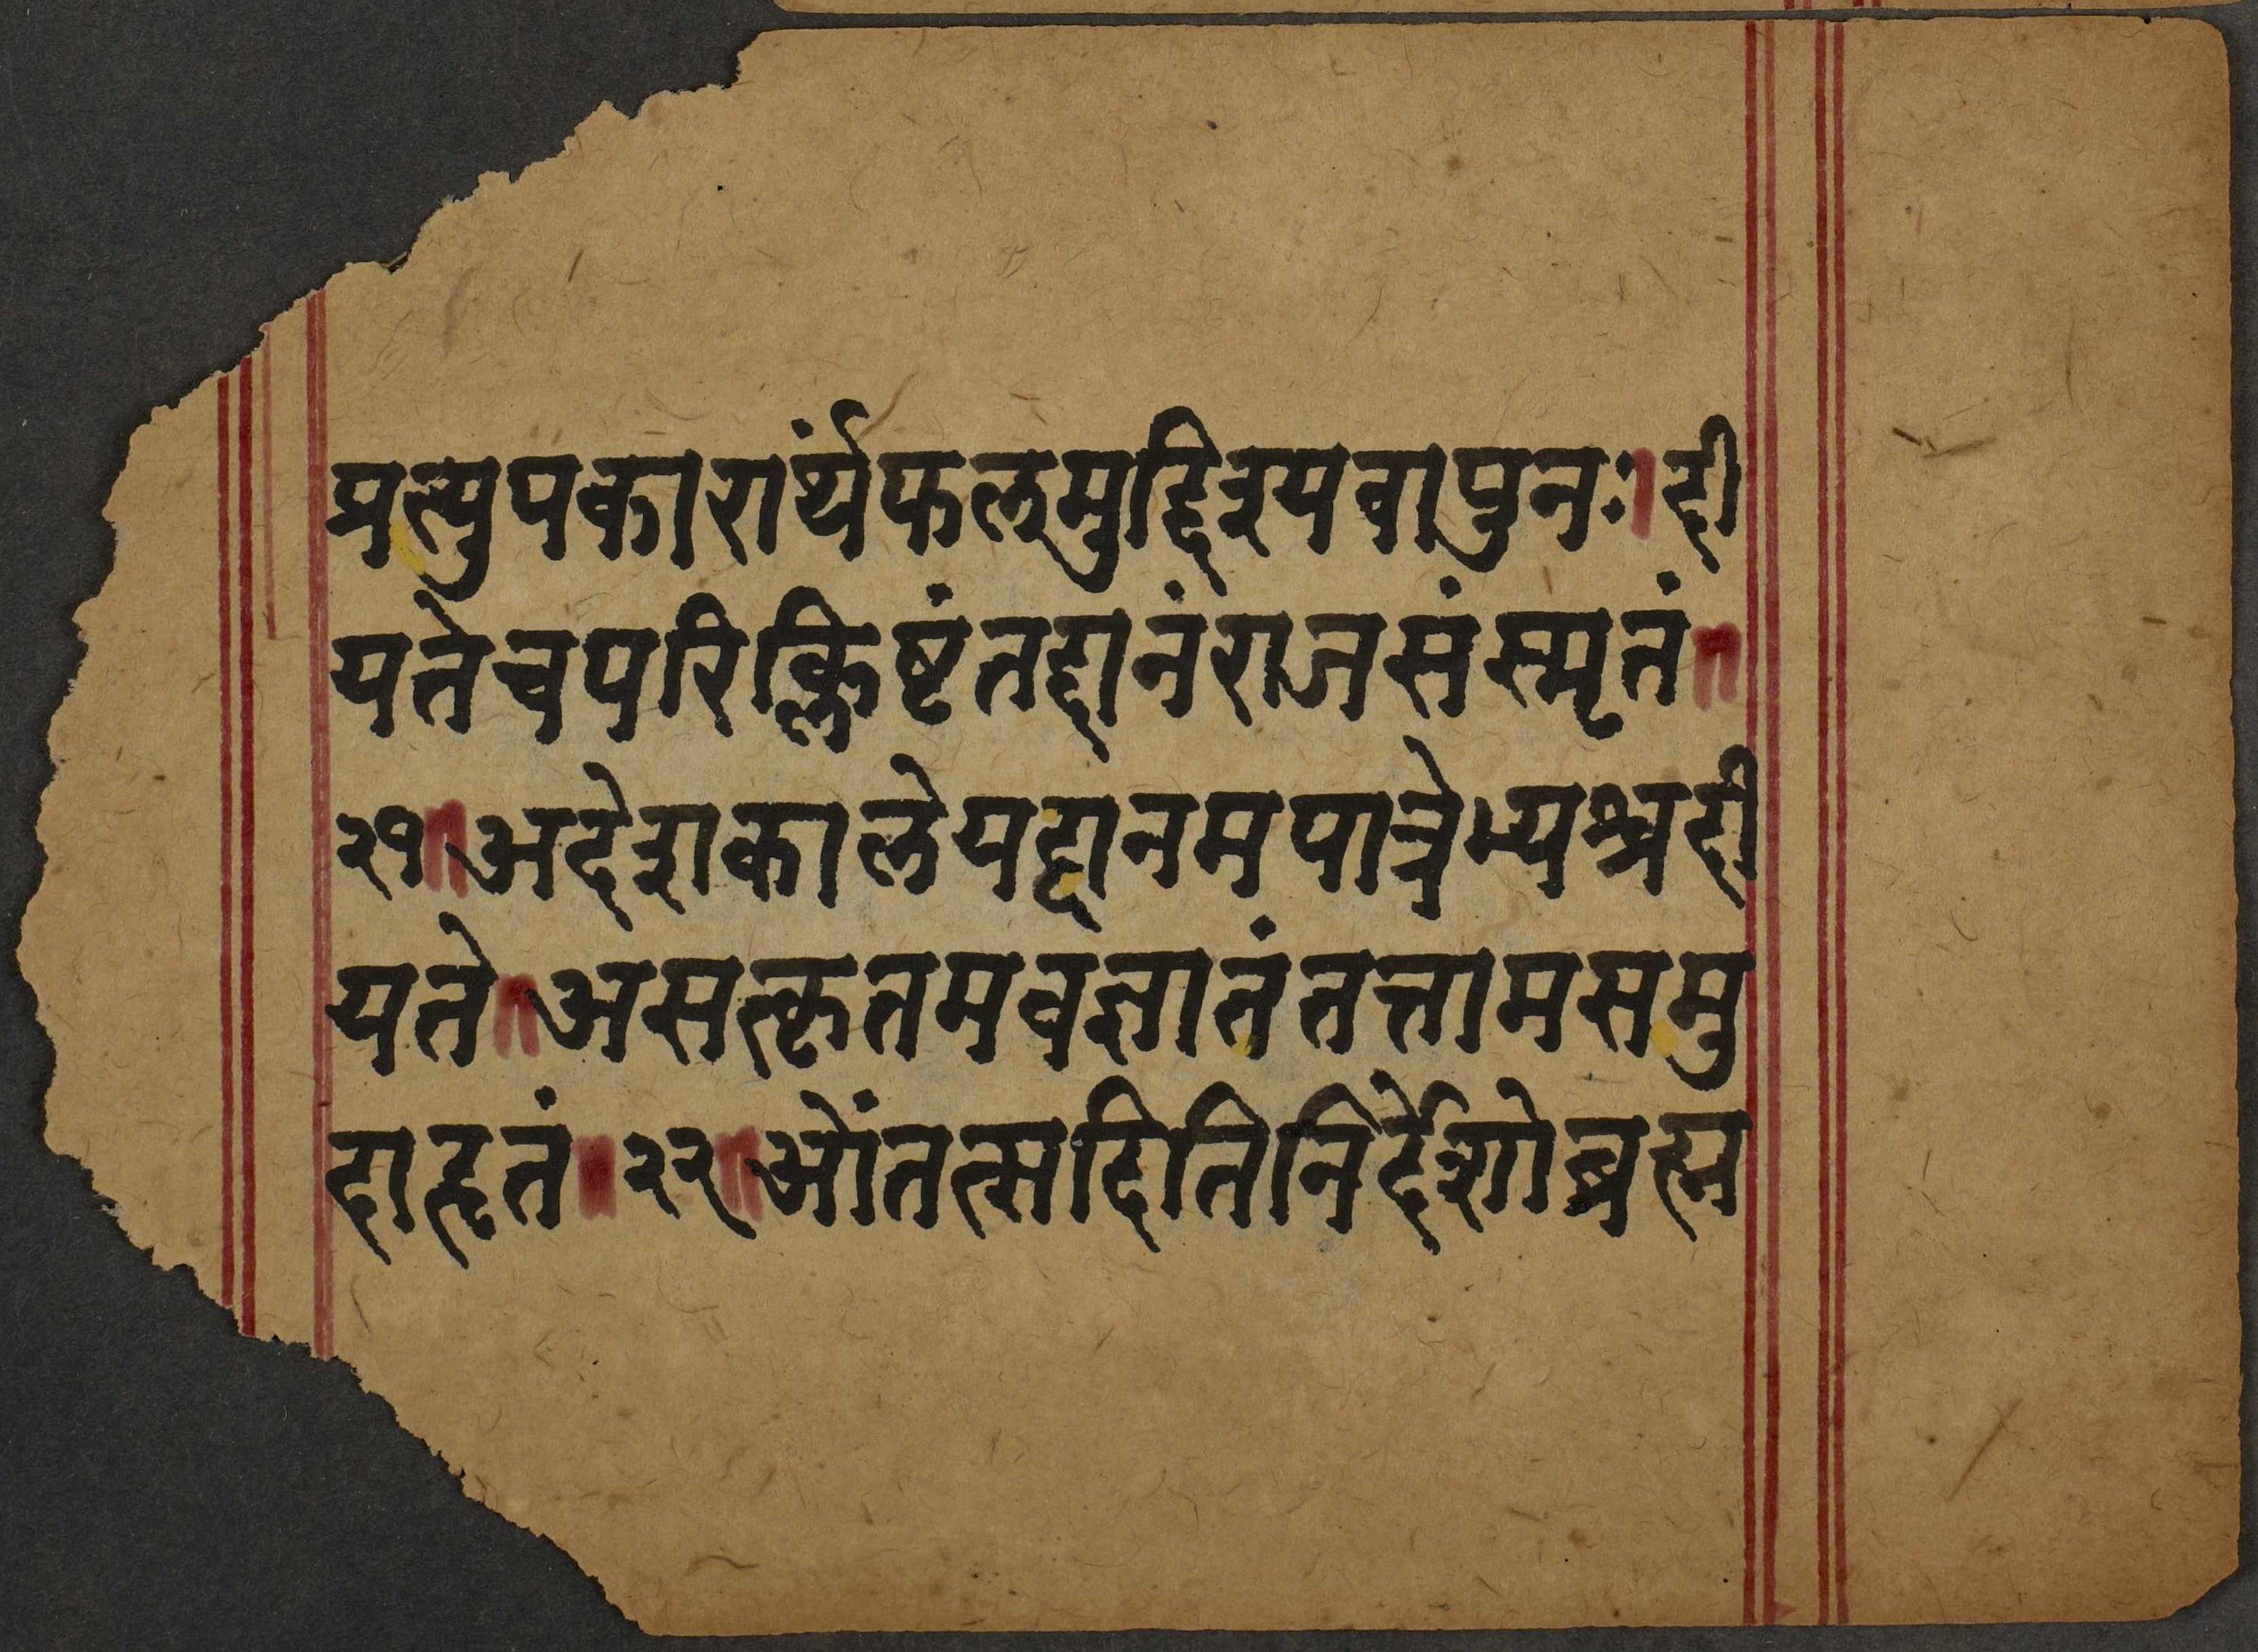 प्रत्युपकारार्थंफलमुद्दिश्यवापुनः।दी
यतेचपरिक्लिष्टंतद्दानंराजसंस्मृतं॥
२१॥अदेशकालेयद्दानमपात्रेभ्यश्चदी
यते॥असत्कृतमवज्ञातंतत्तामसमु
दाहृतं॥२२॥ओंतत्सदितिनिर्देशोब्रह्म